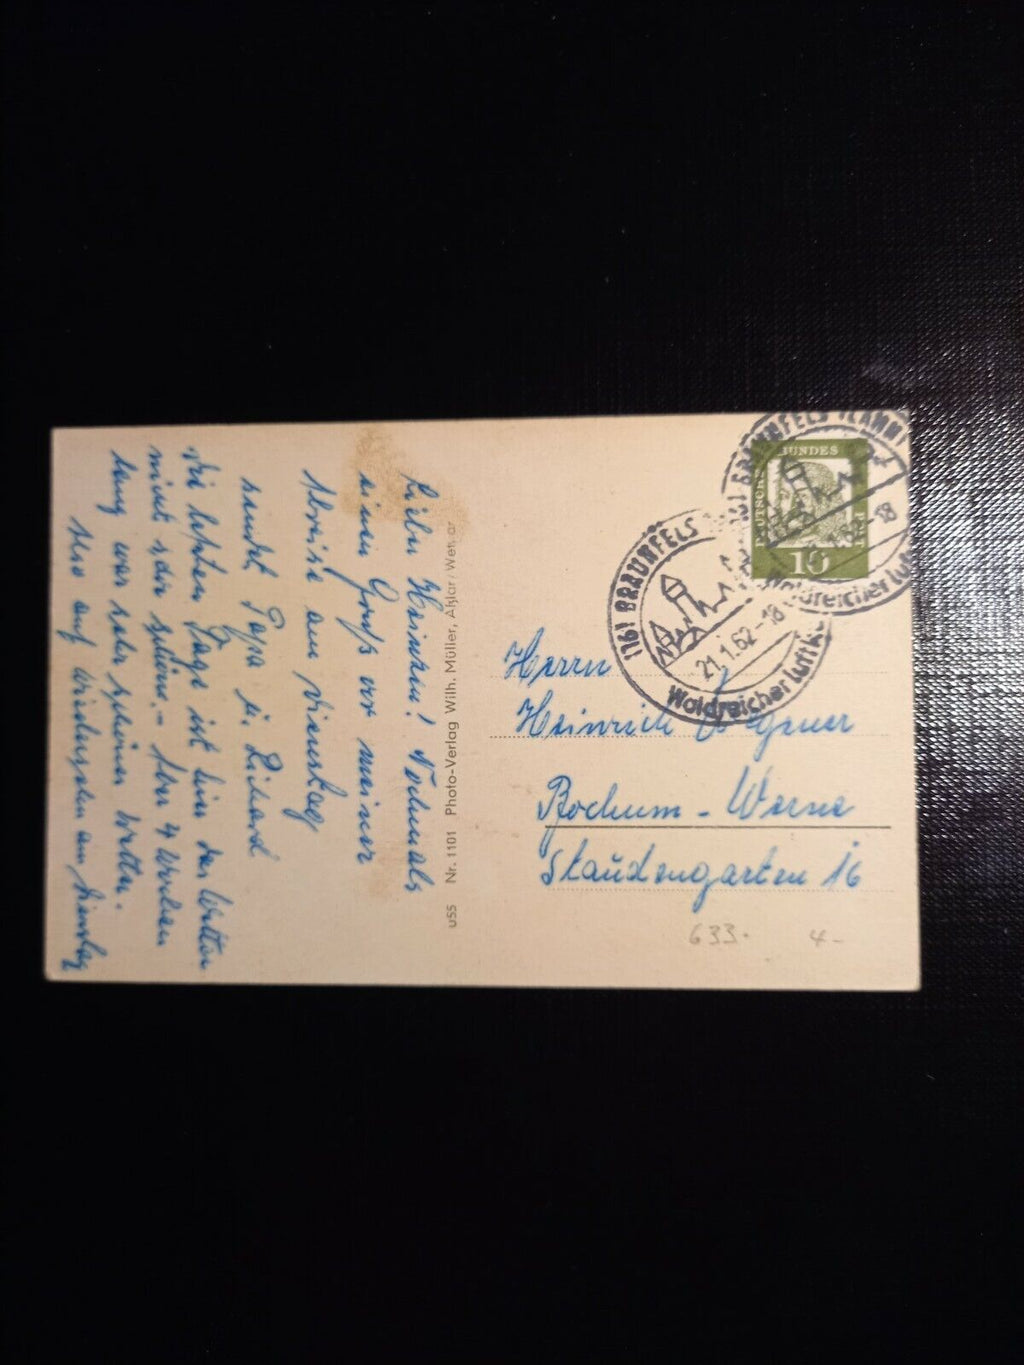 Lieber Heinken! Nochmals
einen Gruß vor meiner
Abreise am Dienstag
sendet Papa u. Richard
Die letzten Tage ist hier das Wetter
nicht sehr schön. - Aber 4 Wochen
lang war sehr schönes Wetter.
Also auf Wiedersehn am Dienstag
U55 Nr. 1101 Photo-Verlag Wilh. Müller, Aßlar/Wetzlar
DEUTSCHE BUNDES
10
BRAUNFELS (LAHN)
18
Waldreicher Luft
1161 BRAUNFELS
21.1.62-18
Waldreicher Luftk
Herrn
Heinrich
Bochum - Werne
Staudengarten 16
633. 4-